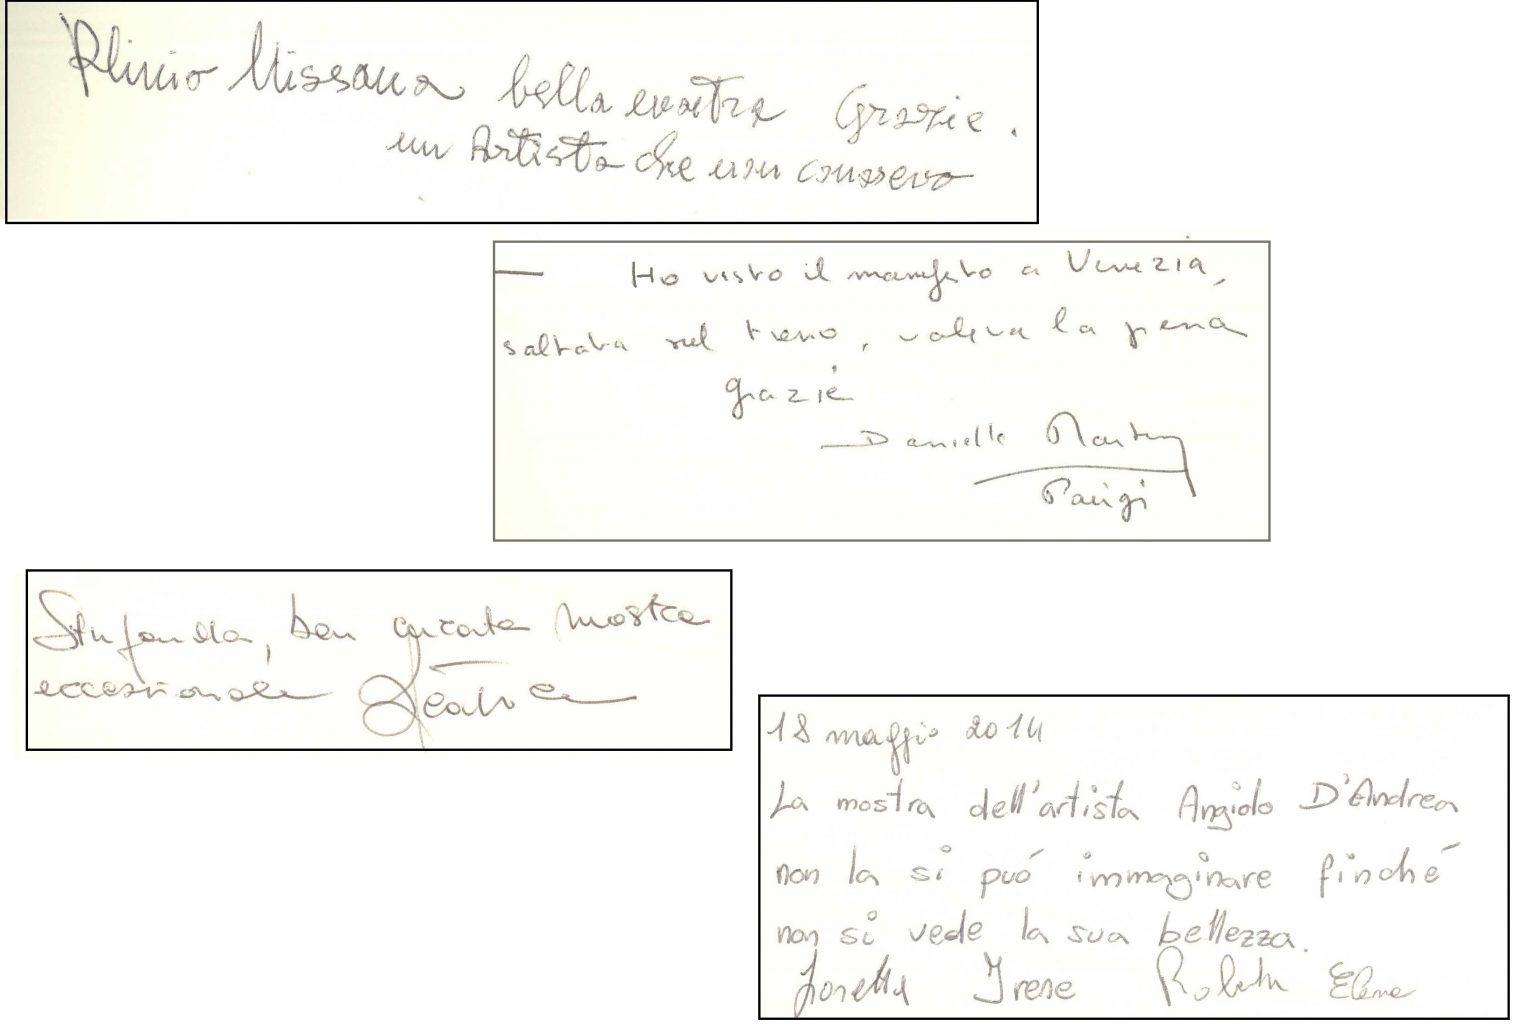 Plinio Missana bella mostra Grazie.
un Artista che non conoscevo
Ho visto il manifesto a Venezia,
saltata sul treno, valeva la pena
grazie
Danielle
Parigi
Stupenda, ben curata mostra
eccezionale
18 maggio 2014
La mostra dell'artista Angiolo D'Andrea
non la si puó immaginare finché
non si vede la sua bellezza.
Loretta Irene Roberta Elena